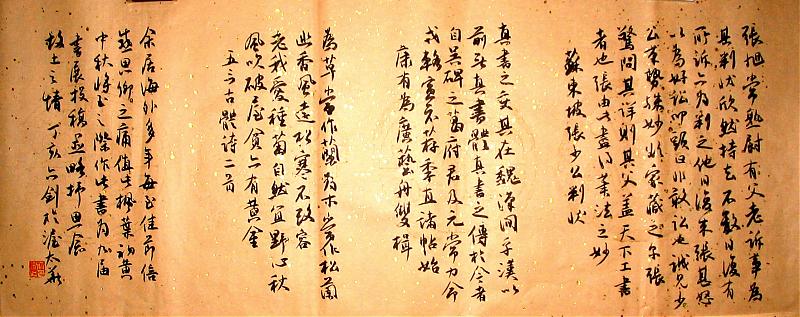 張旭常熟尉有父老訴事為
其判狀欣然持去不數日復有
所訴亦為判之他日復來張甚怒
以為好訟叩頭曰非敢訟也誠見少
公筆勢殊妙欲家藏之爾張
驚問其詳則其父蓋天下工書
者也張由此盡得筆法之妙
蘇東坡張少公判狀
真書之變其在魏漢間乎漢以
前無真書體真書之傳於今者
自吳碑之葛府君及元常力命
戎輅宣示薦季直諸帖始
康有為廣藝舟雙楫
為草當作蘭為木當作松蘭
幽香風遠松寒不改容
老我愛種菊自然宜野心秋
風吹破屋貧亦有黃金
五言古體詩二首
余居海外多年每至佳節倍
感思鄉之痛值此楓葉初黃
中秋將至之際作此書為九屆
書展投稿並略抒思念
故土之情 丁亥亦劍於渥太華